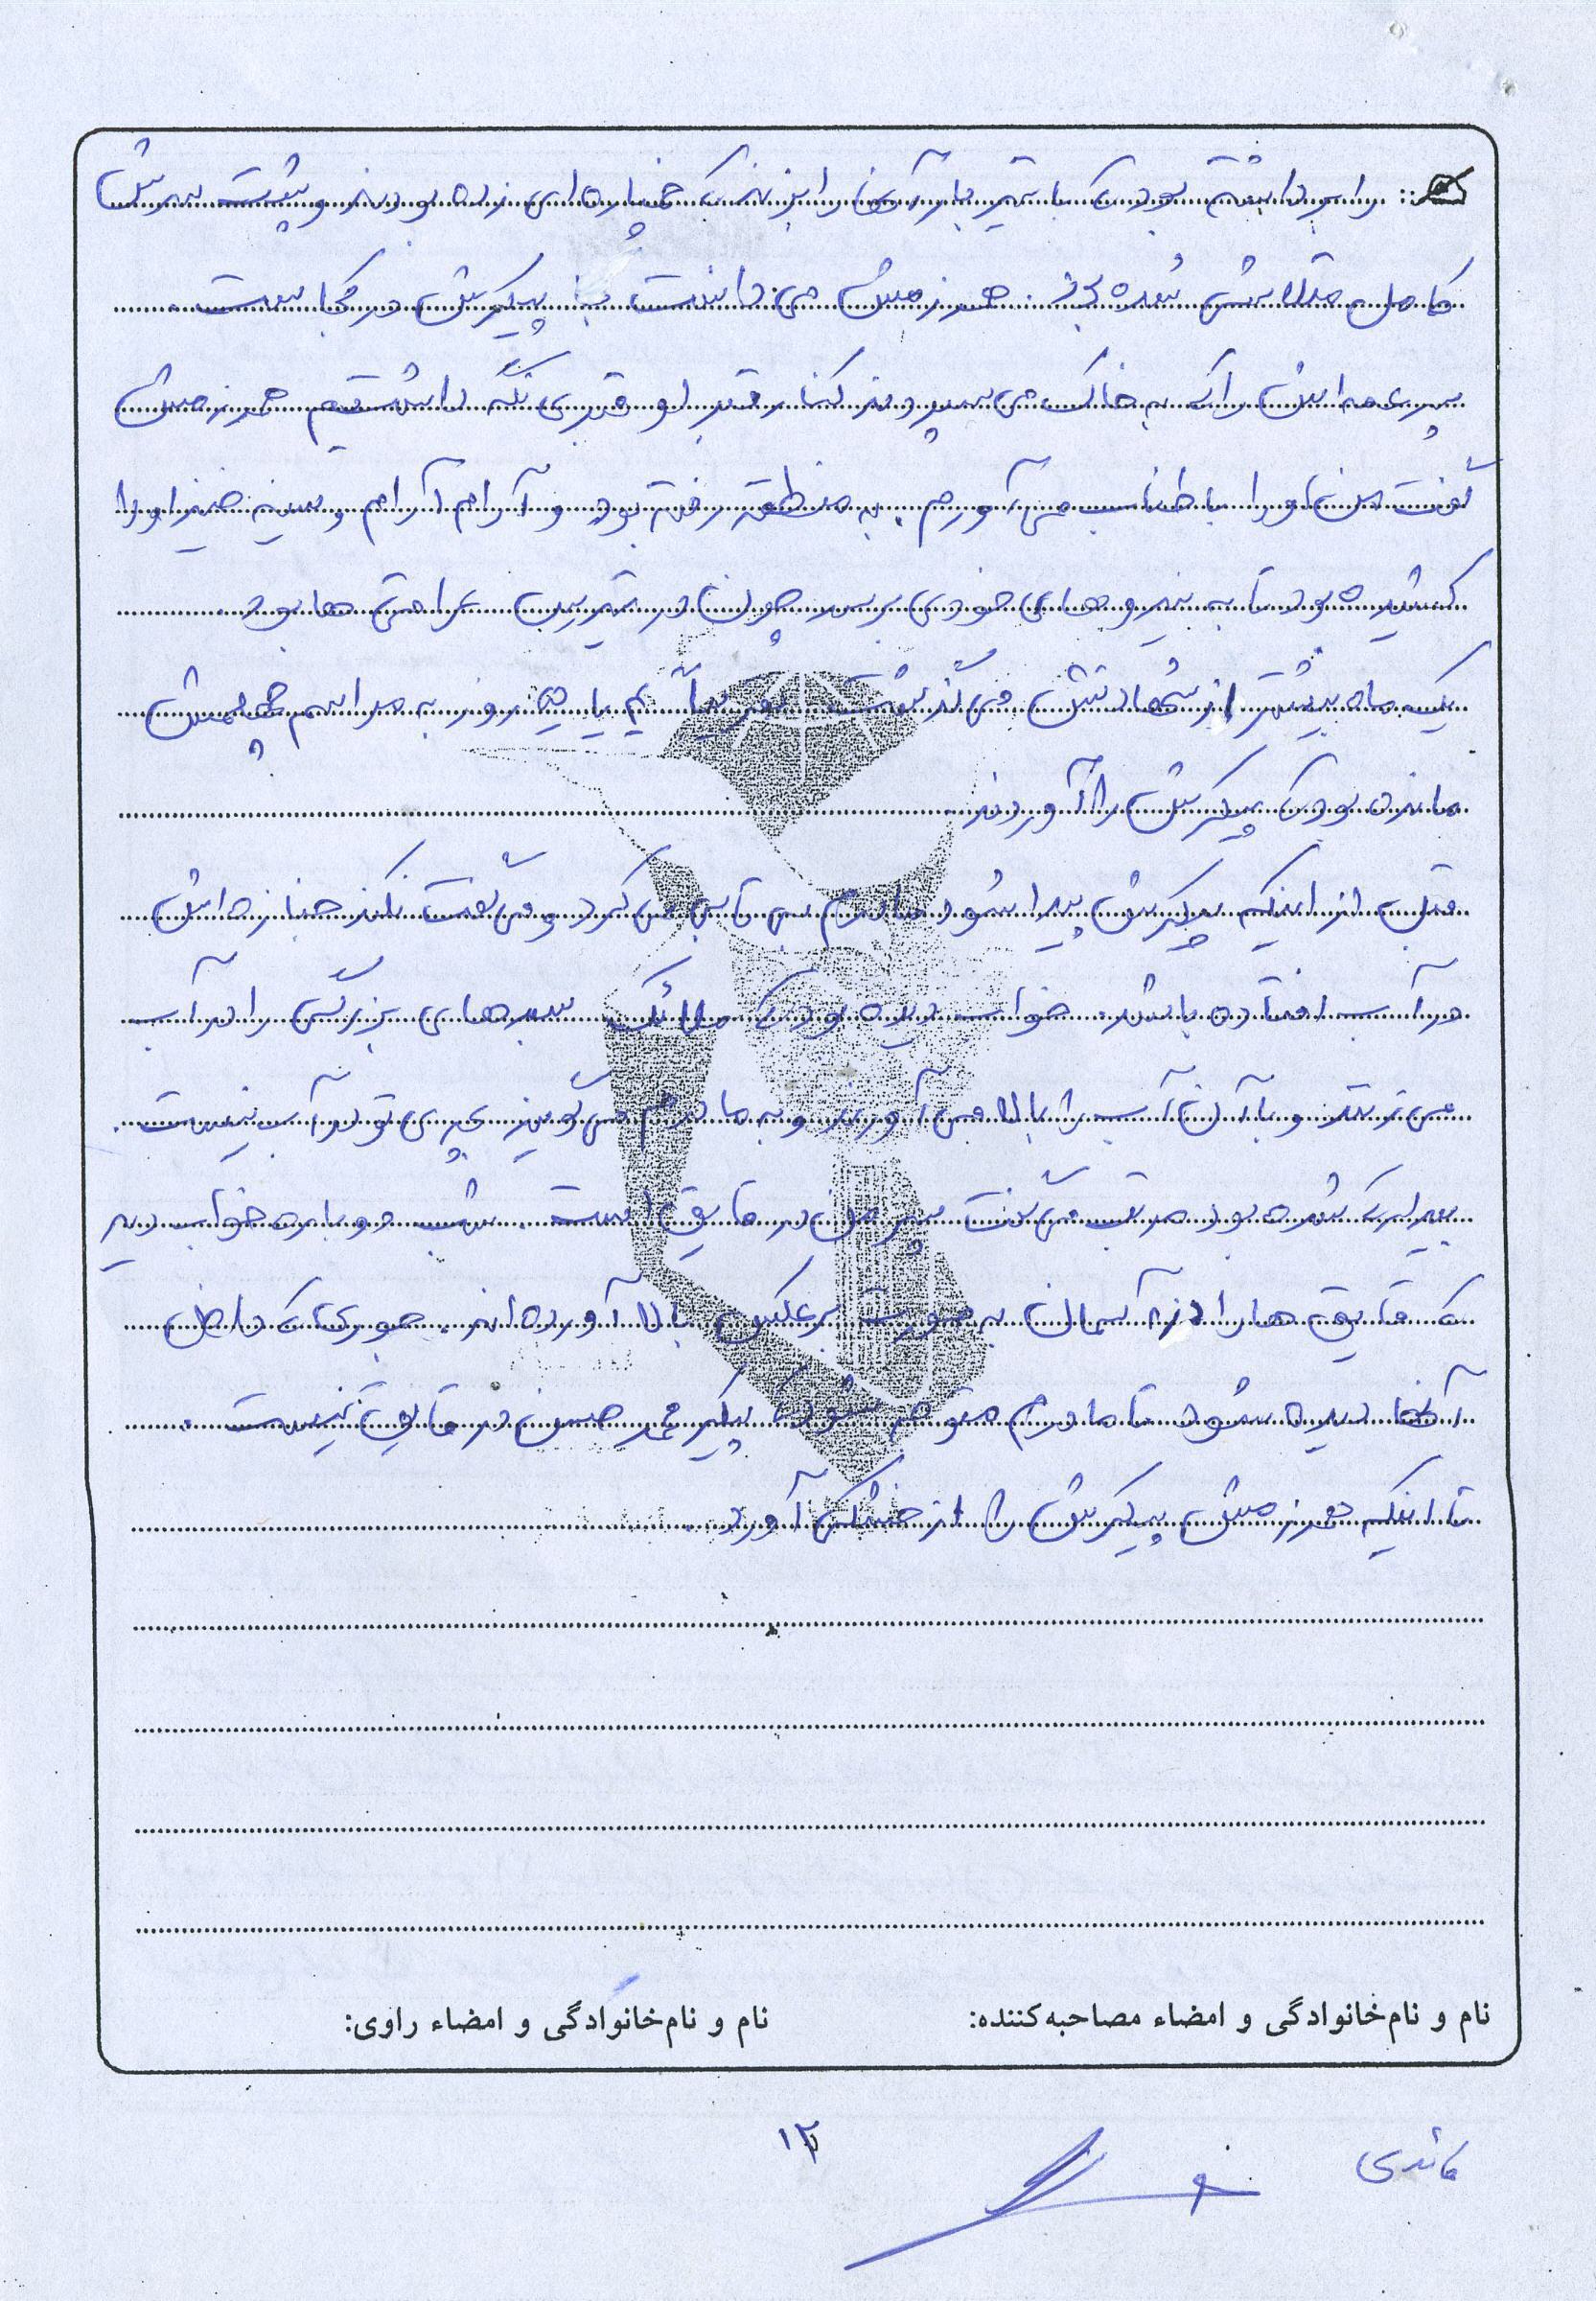 را برداشته بود که با تیربار آنها را بزند که خمپاره‌ای زده بودند و پشت سرش
کامل متلاشی شده بود. همرزمش می‌دانست که پیکرش در کجاست.
پسرعمه‌اش را که به خاک می‌سپردند کنار قبر او قبری نگه داشتیم همرزمش
گفت من او را با طناب می‌آورم. به منطقه رفته بود و آرام آرام و سینه خیز او را
کشیده بود تا به نیروهای خودی برسد چون در تیررس عراقی‌ها بود.
یک ماه بیشتر از شهادتش می‌گذشت تقریباً ۴ یا ۵ روز به مراسم چهلمش
مانده بود که پیکرش را آوردند.
قبل از اینکه پیکرش پیدا شود مادرم بی‌تابی می‌کرد و می‌گفت نکند جنازه‌اش
در آب افتاده باشد. خواب دیده بود که ملائک سبدهای بزرگی را در آب
می‌زنند و با آن آب را بالا می‌آورند و به مادرم می‌گویند پسری تو در آب نیست.
بیدار که شده بود مرتب می‌گفت پسر من در قایق است. شب دوباره خواب دید
که قایق‌ها را در آسمان به صورت برعکس بالا آورده‌اند. جوری که داخل
آنها دیده شود تا مادرم متوجه شود که پیکر محمدحسن در قایق نیست.
تا اینکه همرزمش پیکرش را از خشکی آورد.
نام و نام‌خانوادگی و امضاء مصاحبه‌کننده: نام و نام‌خانوادگی و امضاء راوی:
۱۲